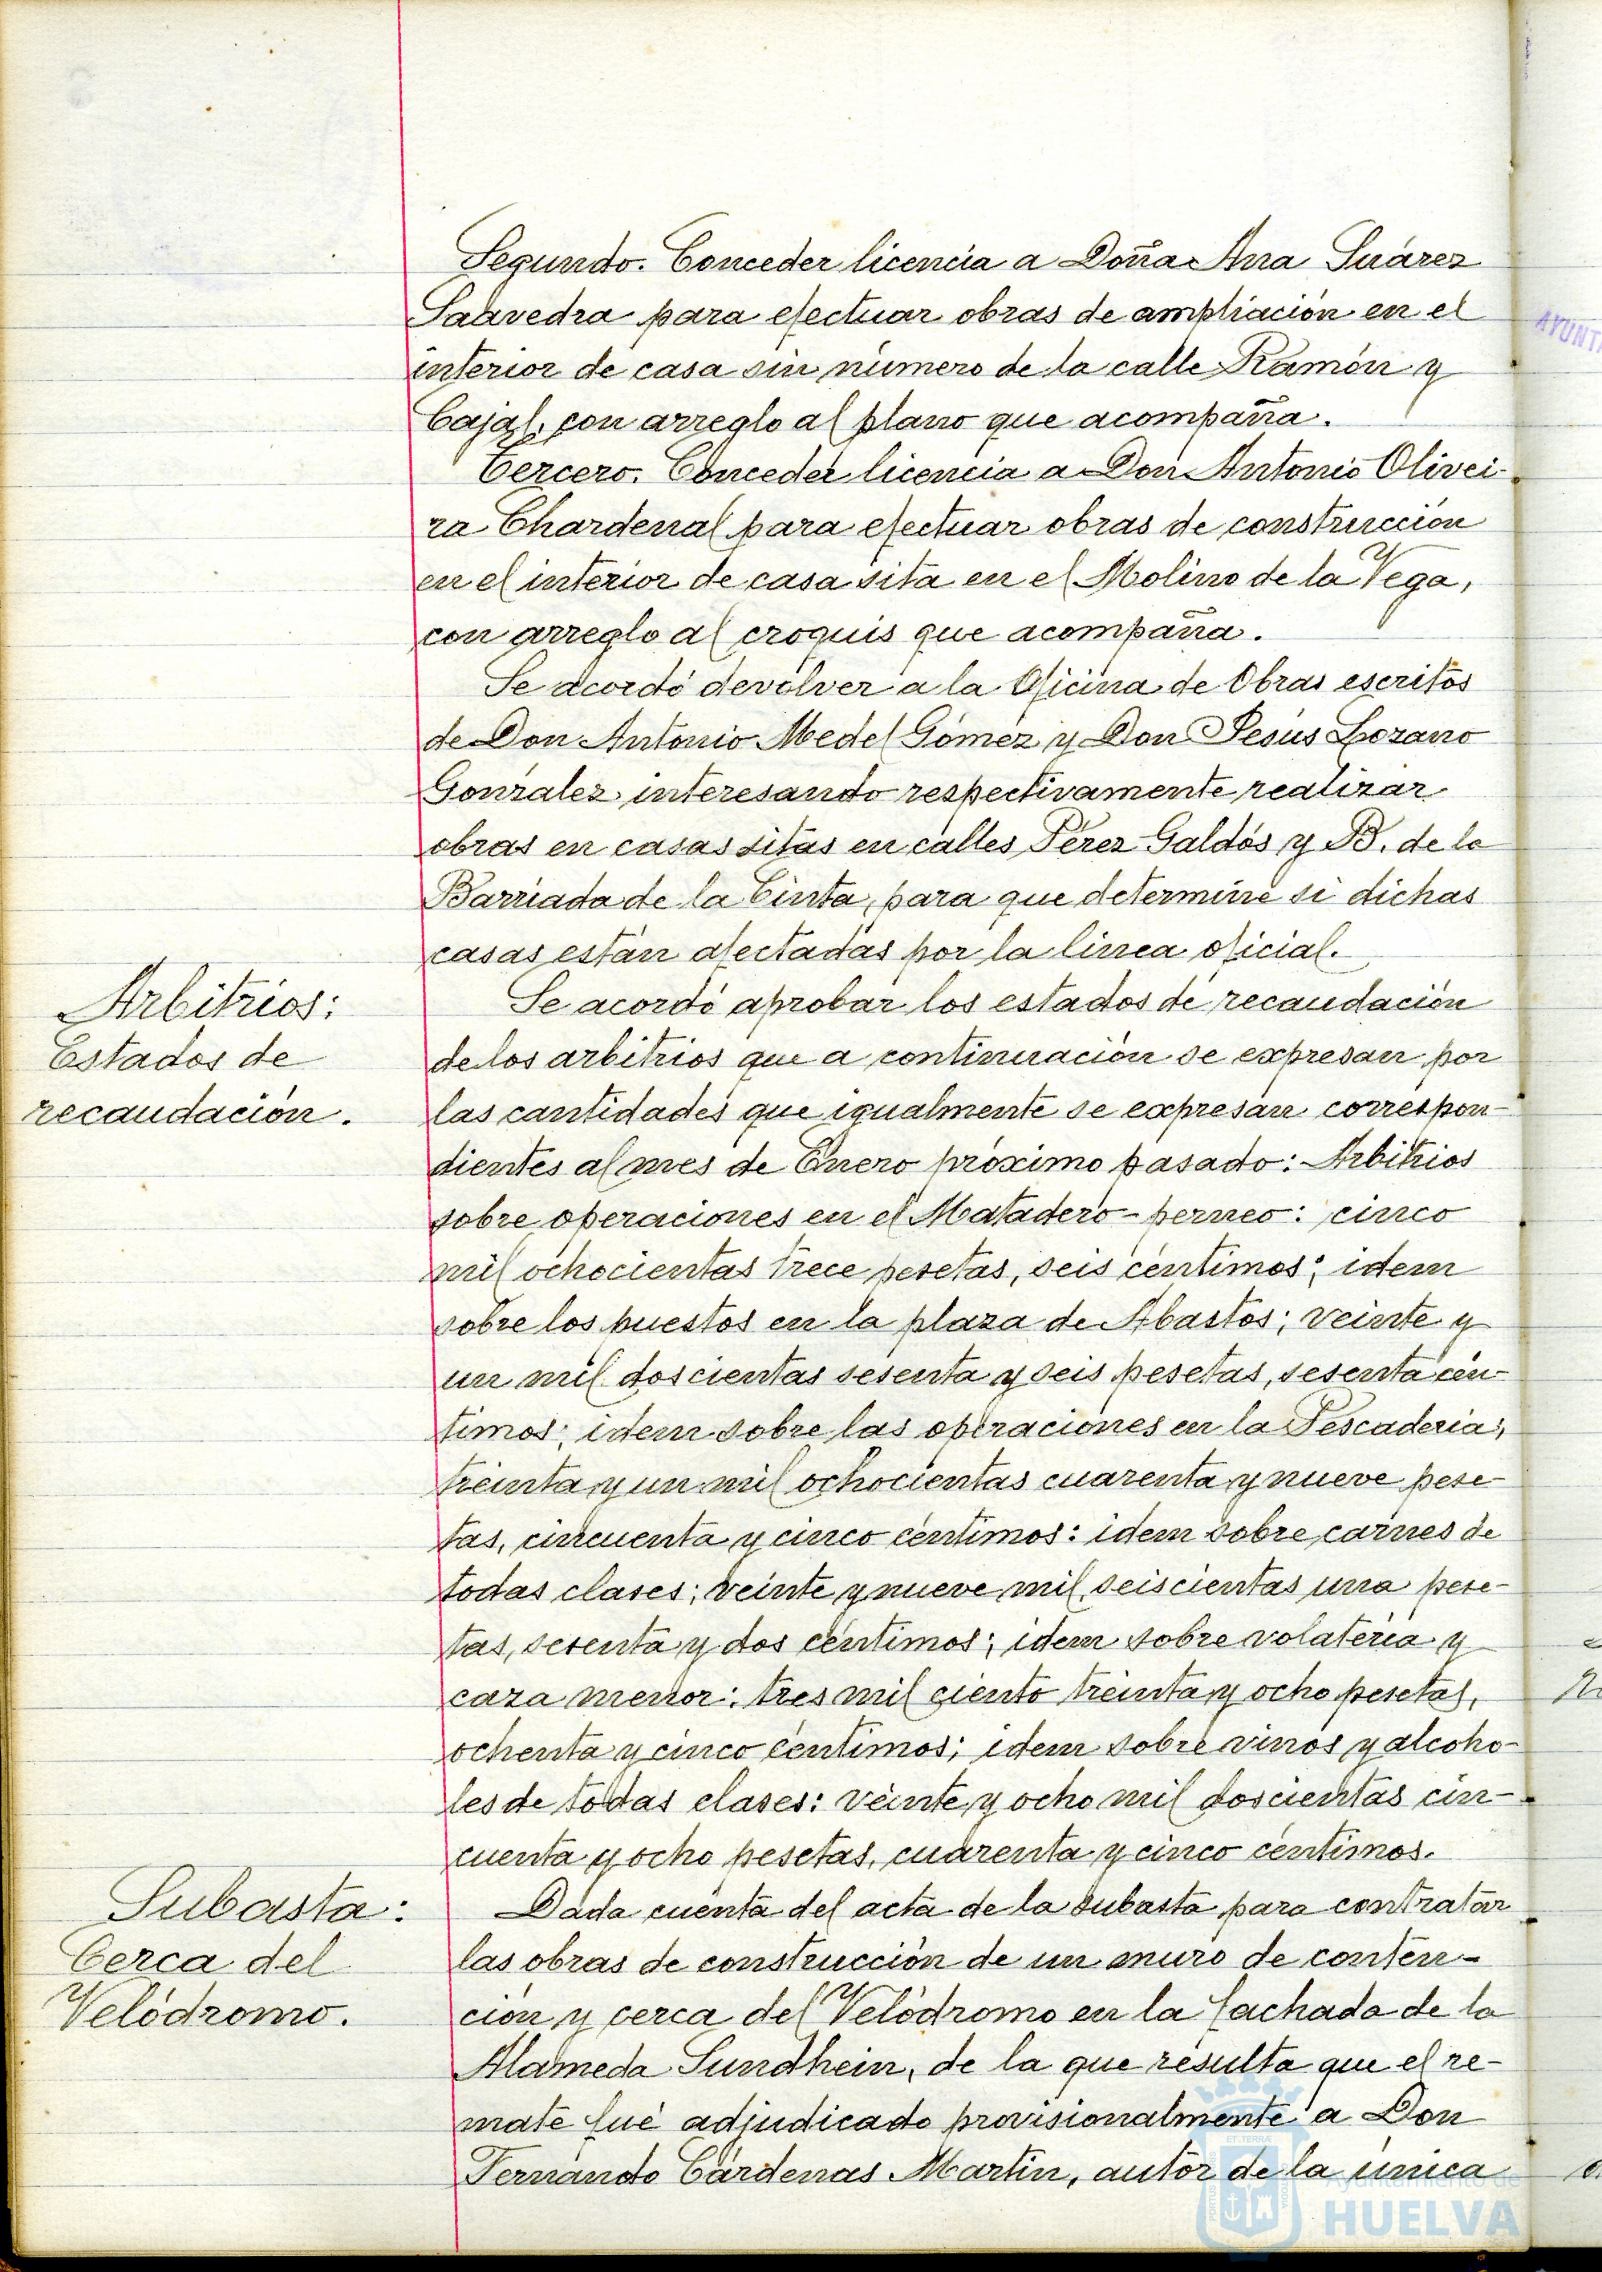 Segundo. Conceder licencia a Doña Ana Suárez
Saavedra para efectuar obras de ampliación en el
interior de casa sin número de la calle Ramón y
Cajal, con arreglo al plano que acompaña.
Tercero. Conceder licencia a Don Antonio Olivei-
ra Chardenal para efectuar obras de construcción
en el interior de casa sita en el Molino de la Vega,
con arreglo al croquis que acompaña.
Se acordó devolver a la Oficina de Obras escritos
de Don Antonio Medel Gómez y Don Jesús Lozano
González interesando respectivamente realizar
obras en casas sitas en calles Pérez Galdós y B. de la
Barriada de la Cinta, para que determine si dichas
casas están afectadas por la linea oficial.
Arbitrios:
Estados de
recaudación.
Se acordó aprobar los estados de recaudación
de los arbitrios que a continuación se expresan por
las cantidades que igualmente se expresan correspon-
dientes al mes de Enero próximo pasado: Arbitrios
sobre operaciones en el Matadero-perneo: cinco
mil ochocientas trece pesetas, seis céntimos; idem
sobre los puestos en la plaza de Abastos; veinte y
un mil doscientas sesenta y seis pesetas, sesenta cén-
timos; idem sobre las operaciones en la Pescaderia;
treinta y un mil ochocientas cuarenta y nueve pese-
tas, cincuenta y cinco céntimos: idem sobre carnes de
todas clases; veinte y nueve mil seiscientas una pese-
tas, sesenta y dos céntimos; idem sobre volateria y
caza menor: tres mil ciento treinta y ocho pesetas,
ochenta y cinco céntimos; idem sobre vinos y alcoho-
les de todas clases: veinte y ocho mil doscientas cin-
cuenta y ocho pesetas, cuarenta y cinco céntimos.
Subasta:
Cerca del
Velódromo.
Dada cuenta del acta de la subasta para contratar
las obras de construcción de un muro de conten-
ción y cerca del Velódromo en la fachada de la
Alameda Sundhein, de la que resulta que el re-
mate fué adjudicado provisionalmente a Don
Fernando Cárdenas Martin, autor de la única
AYUNT
Ayuntamiento de
HUELVA